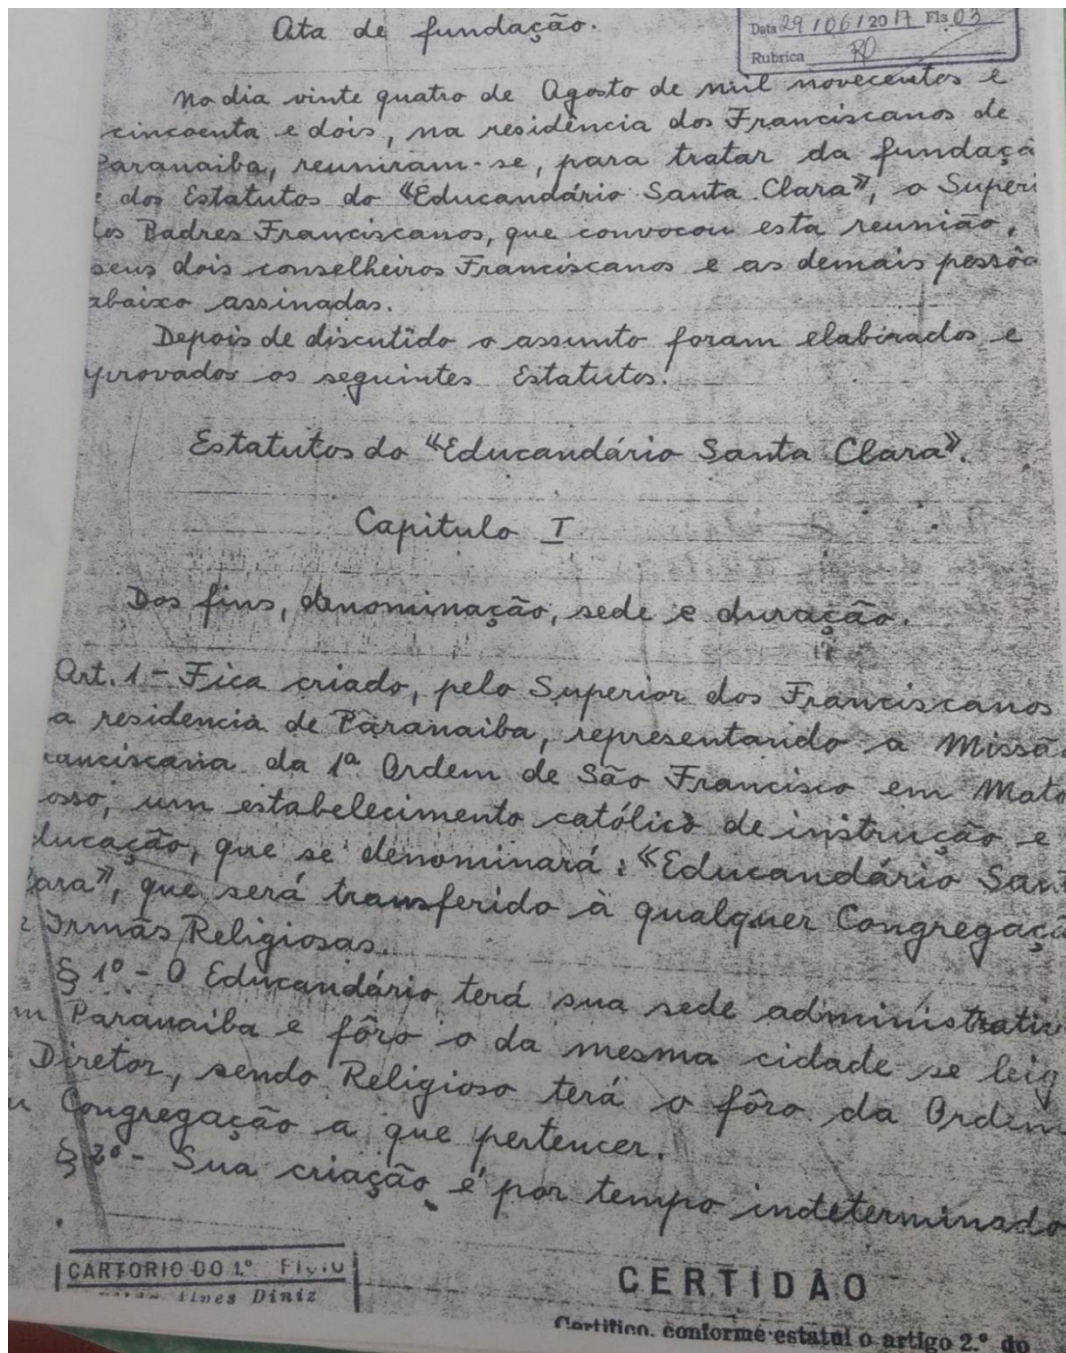 Ata de fundação.
Data 29/06/2017 Fls 03
Rubrica
No dia vinte quatro de Agosto de mil novecentos e
cincoenta e dois, na residência dos Franciscanos de
Paranaiba, reuniram-se, para tratar da fundaçã
e dos Estatutos do «Educandário Santa Clara», o Superi
os Padres Franciscanos, que convocou esta reunião,
seus dois conselheiros Franciscanos e as demais pessôa
abaixo assinadas.
Depois de discutido o assunto foram elaborados e
provados os seguintes Estatutos.
Estatutos do «Educandário Santa Clara».
Capitulo I
Dos fins, denominação, sede e duração.
Art. 1 - Fica criado, pelo Superior dos Franciscanos
a residencia de Paranaiba, representando a Missã
ranciscana da 1ª Ordem de São Francisco em Mato
osso, um estabelecimento católico de instrução e
ducação, que se denominará: «Educandário San
lara», que será transferido à qualquer Congregaçã
Irmãs Religiosas.
§ 1º - O Educandário terá sua sede administrativ
m Paranaiba e fôro o da mesma cidade se leig
Diretor, sendo Religioso terá o fôro da Ordem
u Congregação a que pertencer.
§ 2º - Sua criação é por tempo indeterminado
CARTORIO DO 1.º
Alves Diniz
CERTIDÃO
Certifico, conforme estatui o artigo 2.º do